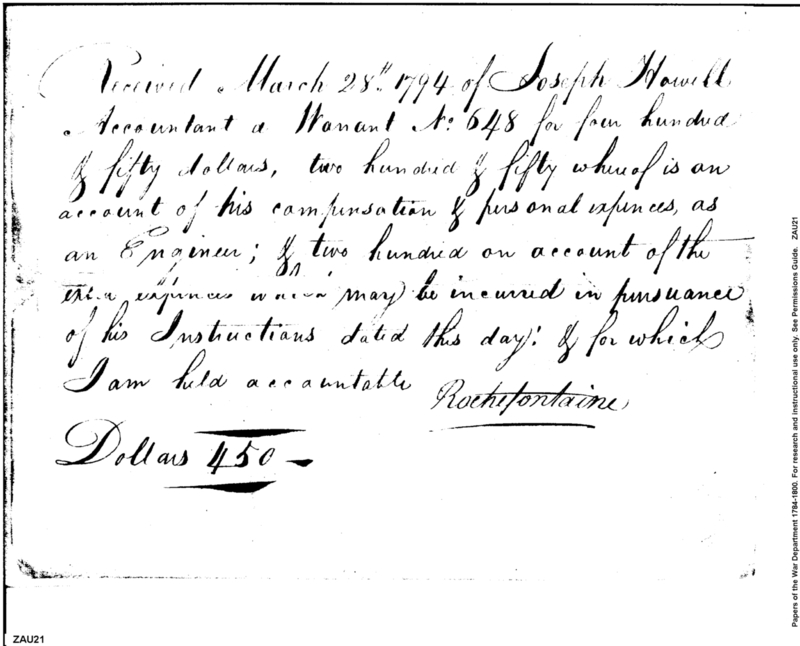 Received March 28th. 1794 of Joseph Howell
Accountant a Warrant No. 648 for four hundred
& fifty dollars, two hundred & fifty whereof is on
account of his compensation & personal expences, as
an Engineer; & two hundred on account of the
extra expences which may be incurred in pursuance
of his Instructions dated this day: & for which
I am held accountable
Rochefontaine
Dollars 450
Papers of the War Department 1784-1800. For research and instructional use only. See Permissions Guide. ZAU21
ZAU21